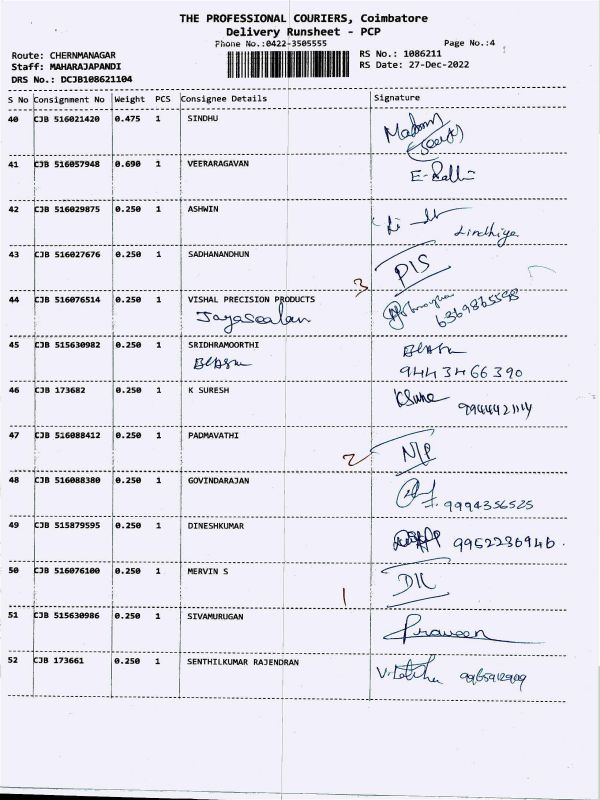 THE PROFESSIONAL COURIERS, Coimbatore
Delivery Runsheet - PCP
Phone No.:0422-3505555
Page No.:4
Route: CHERNMANAGAR
RS No.: 1086211
Staff: MAHARAJAPANDI
RS Date: 27-Dec-2022
DRS No.: DCJB108621104
S No Consignment No Weight PCS Consignee Details Signature
40 CJB 516021420 0.475 1 SINDHU
41 CJB 516057948 0.690 1 VEERARAGAVAN
42 CJB 516029875 0.250 1 ASHWIN
43 CJB 516027676 0.250 1 SADHANANDHUN PIS
3
44 CJB 516076514 0.250 1 VISHAL PRECISION PRODUCTS
Jayaseelan 6369865598
45 CJB 515630982 0.250 1 SRIDHRAMOORTHI
9443466390
46 CJB 173682 0.250 1 K SURESH
47 CJB 516088412 0.250 1 PADMAVATHI
2 N/P
48 CJB 516088380 0.250 1 GOVINDARAJAN
9994356525
49 CJB 515879595 0.250 1 DINESHKUMAR
9952236946.
50 CJB 516076100 0.250 1 MERVIN S
1 DIL
51 CJB 515630986 0.250 1 SIVAMURUGAN
Praveen
52 CJB 173661 0.250 1 SENTHILKUMAR RAJENDRAN